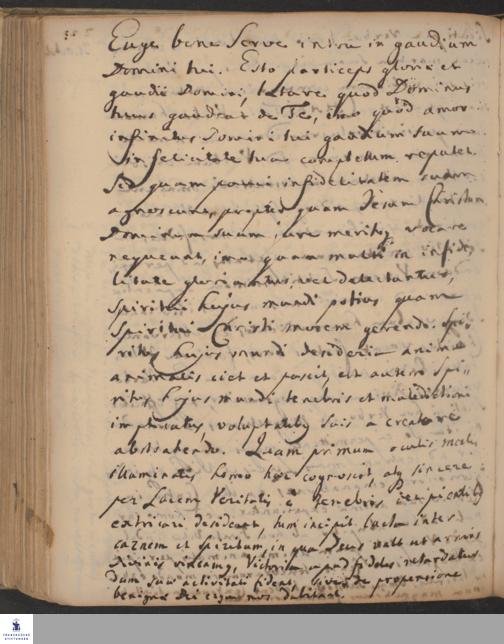 Euge bene Serve intra in gaudium
Domini tui. Esto particeps gloriae et
gaudii Domini, laetare quod Dominus
tuus gaudeat de Te, imo quod amor
infinitus Domini tui gaudium suum
in felicitate tua completum reputet.
Sed quam pauci infidelitatem suam
agnoscunt, propter quam Jesum Christum
Dominum suum jure meritoq vocare
nequeunt, imo quam multi in infide
litate gloriantur, vel delectantur,
Spiritui hujus mundi potius quam
Spiritui Christi morem gerendo. Spi-
ritus hujus mundi desideria animae
animalis ciet et pascit, est autem Spi-
ritus hujus mundi tenebris et maledictioni
implicatus, voluptatibq suis a creatore
abstrahendo. Quam primum oculis
illuminatis homo hoc cognoscit, atq sincere
per Lucem Veritatis e tenebris
extricari desiderat, tum incipit lucta inter
carnem et Spiritum, in qua Deus vult ut armis
divinis vincamq, Victoriam apud fideles retardatus
dum sua activitati fidens,
benigna Dei erga nos dubitant.